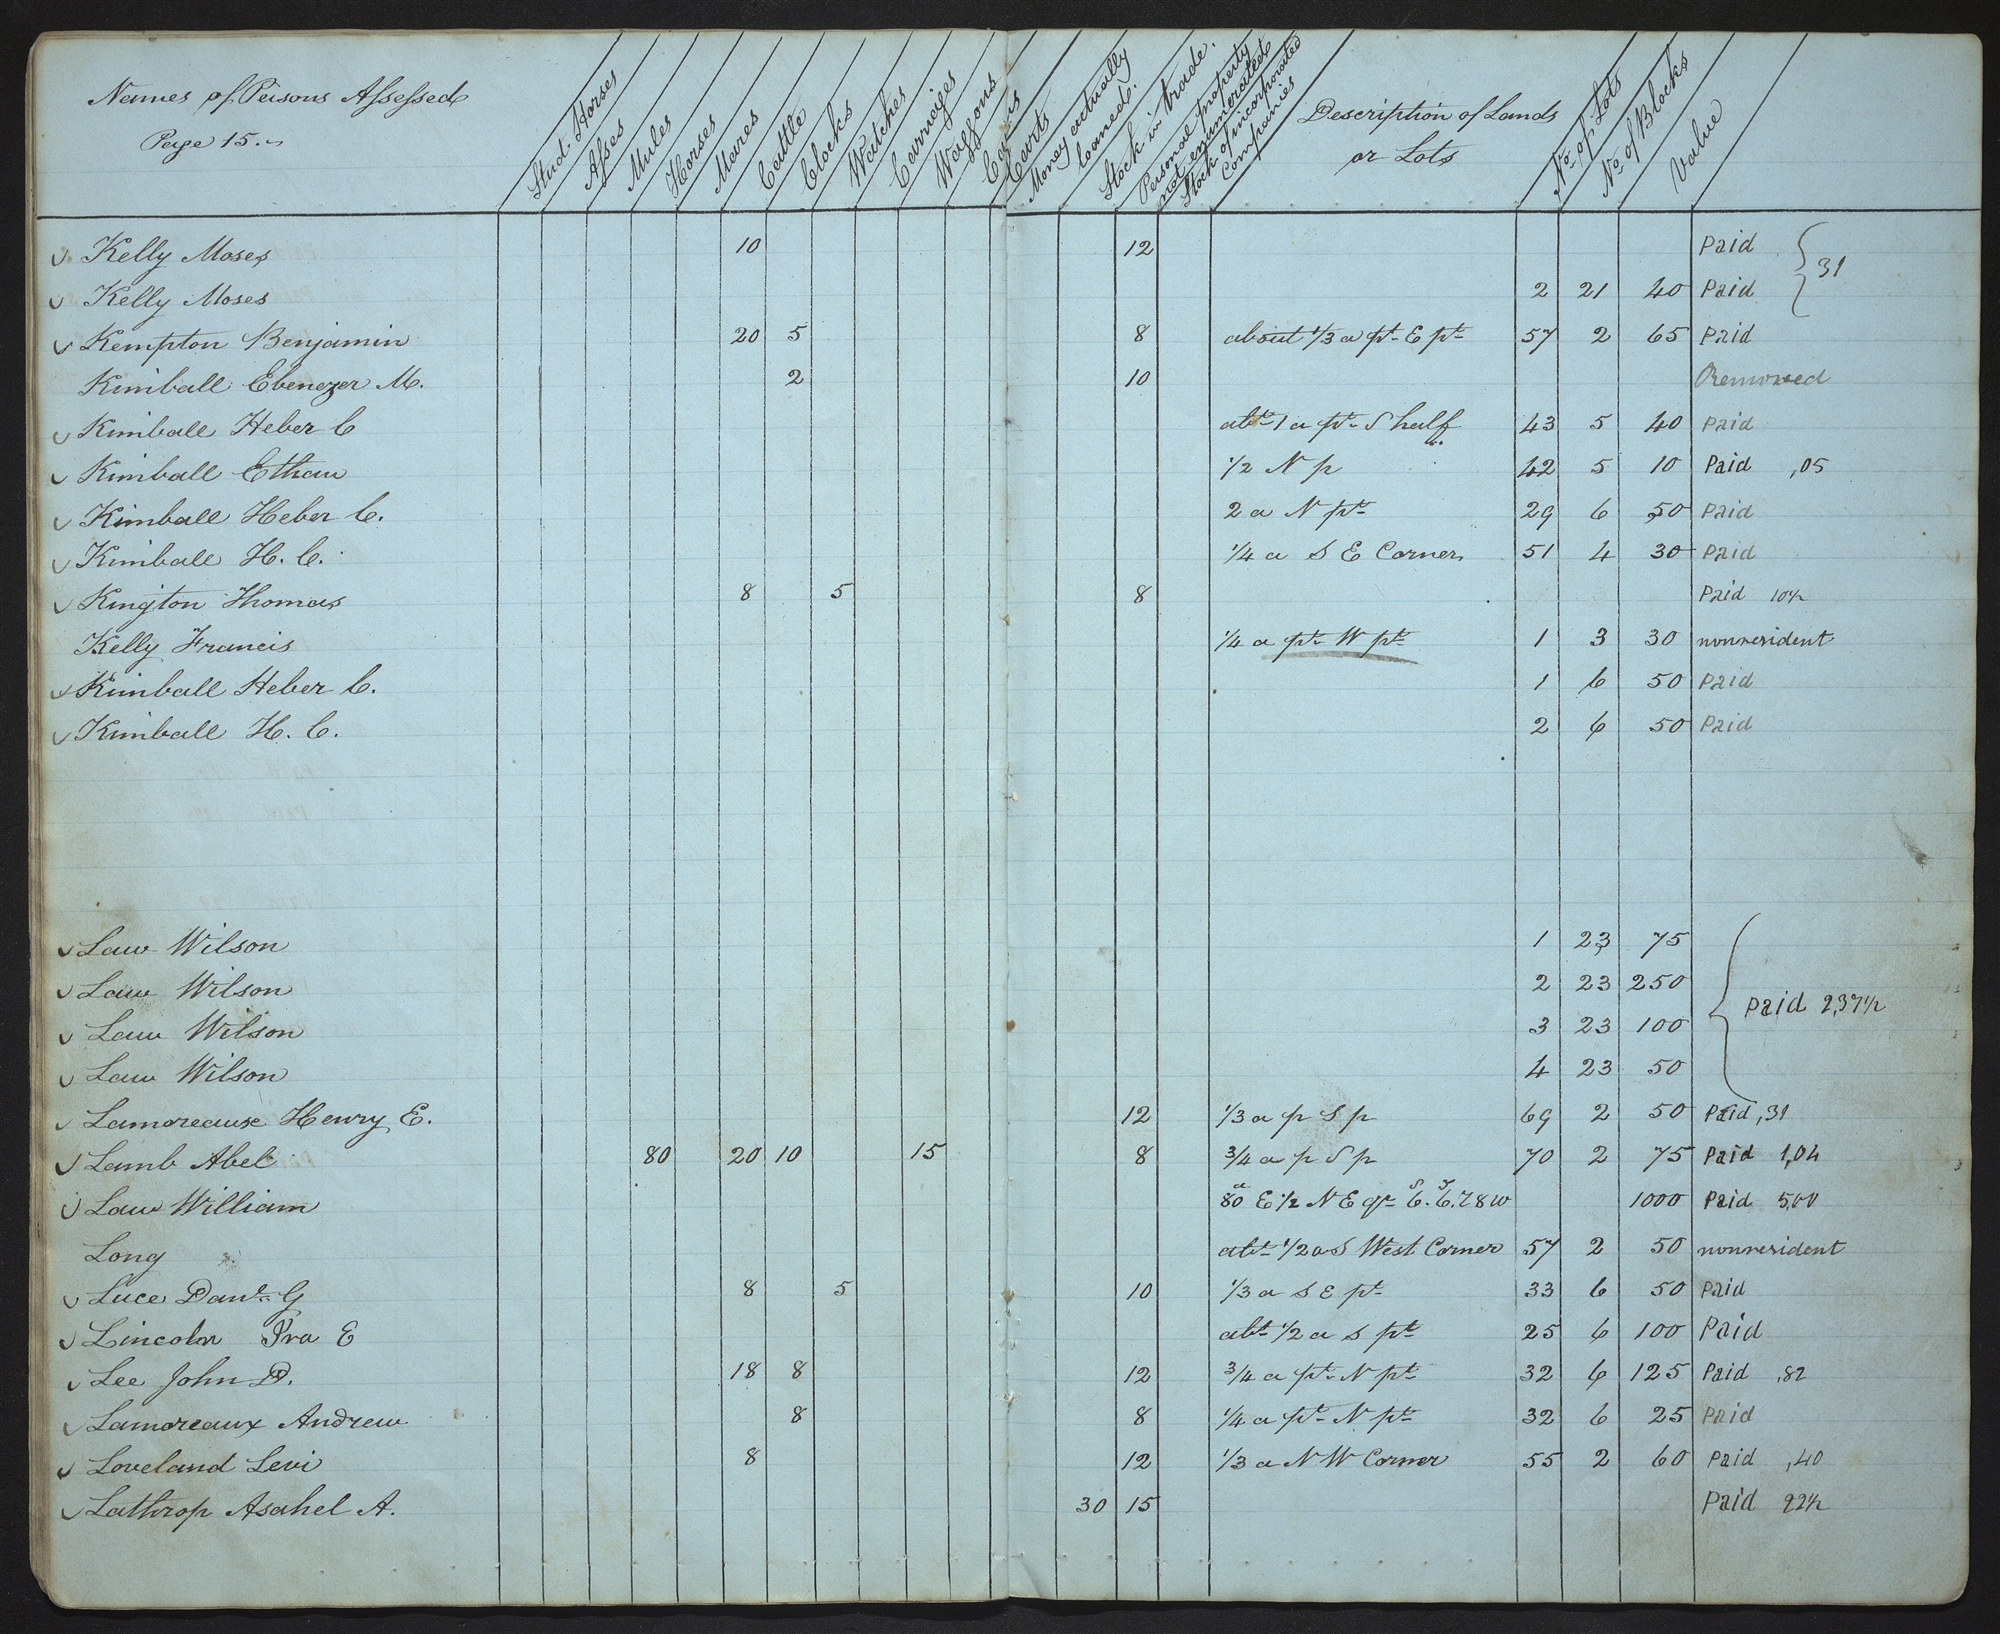 Names of Persons Assessed
Page 15.
Stud-Horses
Asses
Mules
Horses
Mares
Cattle
Clocks
Watches
Carriages
Waggons
Carts
Money actually loaned.
Stock in trade.
Personal property not enumerated
Stock of incorporated Companies
Description of Lands or Lots
No. of Lots
No. of Blocks
Value
Kelly Moses 10 12 Paid
Kelly Moses 2 21 40 Paid } 31
Kempton Benjamin 20 5 8 about 1/3 a pt E pt 57 2 65 Paid
Kimball Ebenezer M. 2 10 Removed
Kimball Heber C abt 1 a pt S half 43 5 40 Paid
Kimball Ethan 1/2 N p 42 5 10 Paid ,05
Kimball Heber C. 2 a N pt 29 6 50 Paid
Kimball H. C. 1/4 a S E Corner 51 4 30 Paid
Kington Thomas 8 5 8 Paid 10½
Kelly Francis 1/4 a pt W pt 1 3 30 nonresident
Kimball Heber C. 1 6 50 Paid
Kimball H. C. 2 6 50 Paid
Law Wilson 1 23 75
Law Wilson 2 23 250
Law Wilson 3 23 100 Paid 2,37½
Law Wilson 4 23 50
Lamoreause Henry E. 12 1/3 a p S p 69 2 50 Paid ,31
Lamb Abel 80 20 10 15 8 3/4 a p S p 70 2 75 Paid 1,04
Law William 80 a E 1/2 N E qr 1000 Paid 5,00
Long abt 1/2 a S West Corner 57 2 50 nonresident
Luce Danl. G 8 5 10 1/3 a S E pt 33 6 50 Paid
Lincoln Ira E abt 1/2 a S pt 25 6 100 Paid
Lee John D. 18 8 12 3/4 a pt N pt 32 6 125 Paid ,82
Lamoreaux Andrew 8 8 1/4 a pt N pt 32 6 25 Paid
Loveland Levi 8 12 1/3 a N W Corner 55 2 60 Paid ,40
Lathrop Asahel A. 30 15 Paid 22½